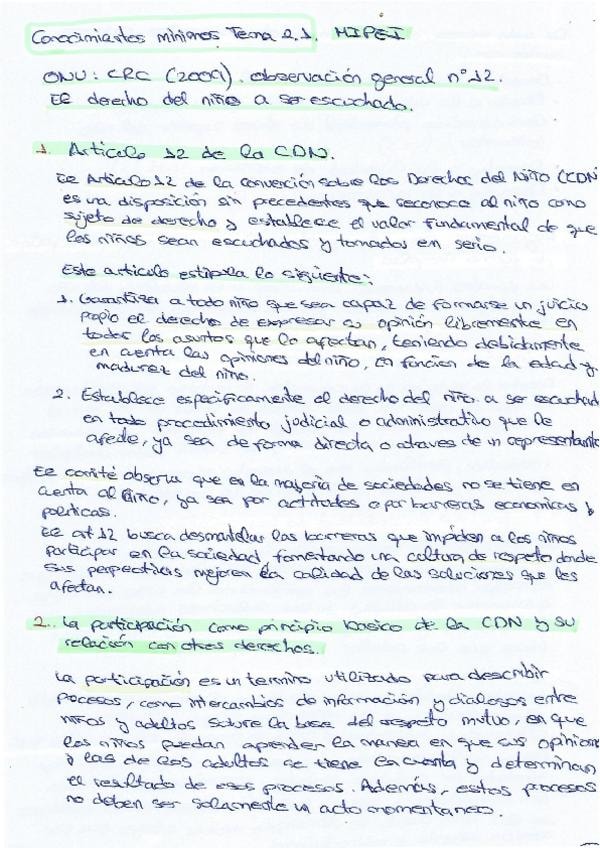 Conocimientos minimos Tema 2.1. MIPEI
ONU: CRC (2009). observación general nº 12.
El derecho del niño a ser escuchado.
1. Articulo 12 de la CDN.
El Articulo 12 de la convención sobre los Derechos del Niño (CDN)
es una disposición sin precedentes que reconoce al niño como
sujeto de derecho y establece el valor fundamental de que
los niños sean escuchados y tomados en serio.
Este articulo estipula lo siguiente:
1. Garantiza a todo niño que sea capaz de formarse un juicio
propio el derecho de expresar su opinión libremente en
todos los asuntos que lo afectan, teniendo debidamente
en cuenta las opiniones del niño, en función de la edad y
madurez del niño.
2. Establece especificamente el derecho del niño a ser escuchado
en todo procedimiento judicial o administrativo que le
afecte, ya sea de forma directa o atraves de un representante
El comité observa que en la mayoria de sociedades no se tiene en
cuenta al niño, ya sea por actitudes o por barreras economicas y
politicas.
El art 12 busca desmantelar las barreras que impiden a los niños
participar en la sociedad fomentando una cultura de respeto donde
sus perspectivas mejoren la calidad de las soluciones que les
afectan.
2. La participación como principio basico de la CDN y su
relación con otros derechos.
La participación es un termino utilizado para describir
procesos, como intercambios de información y dialogos entre
niños y adultos sobre la base del respeto mutuo, en que
los niños puedan aprender la manera en que sus opiniones
y las de los adultos se tiene en cuenta y determinan
el resultado de esos procesos. Además, estos procesos
no deben ser solamente un acto momentaneo.